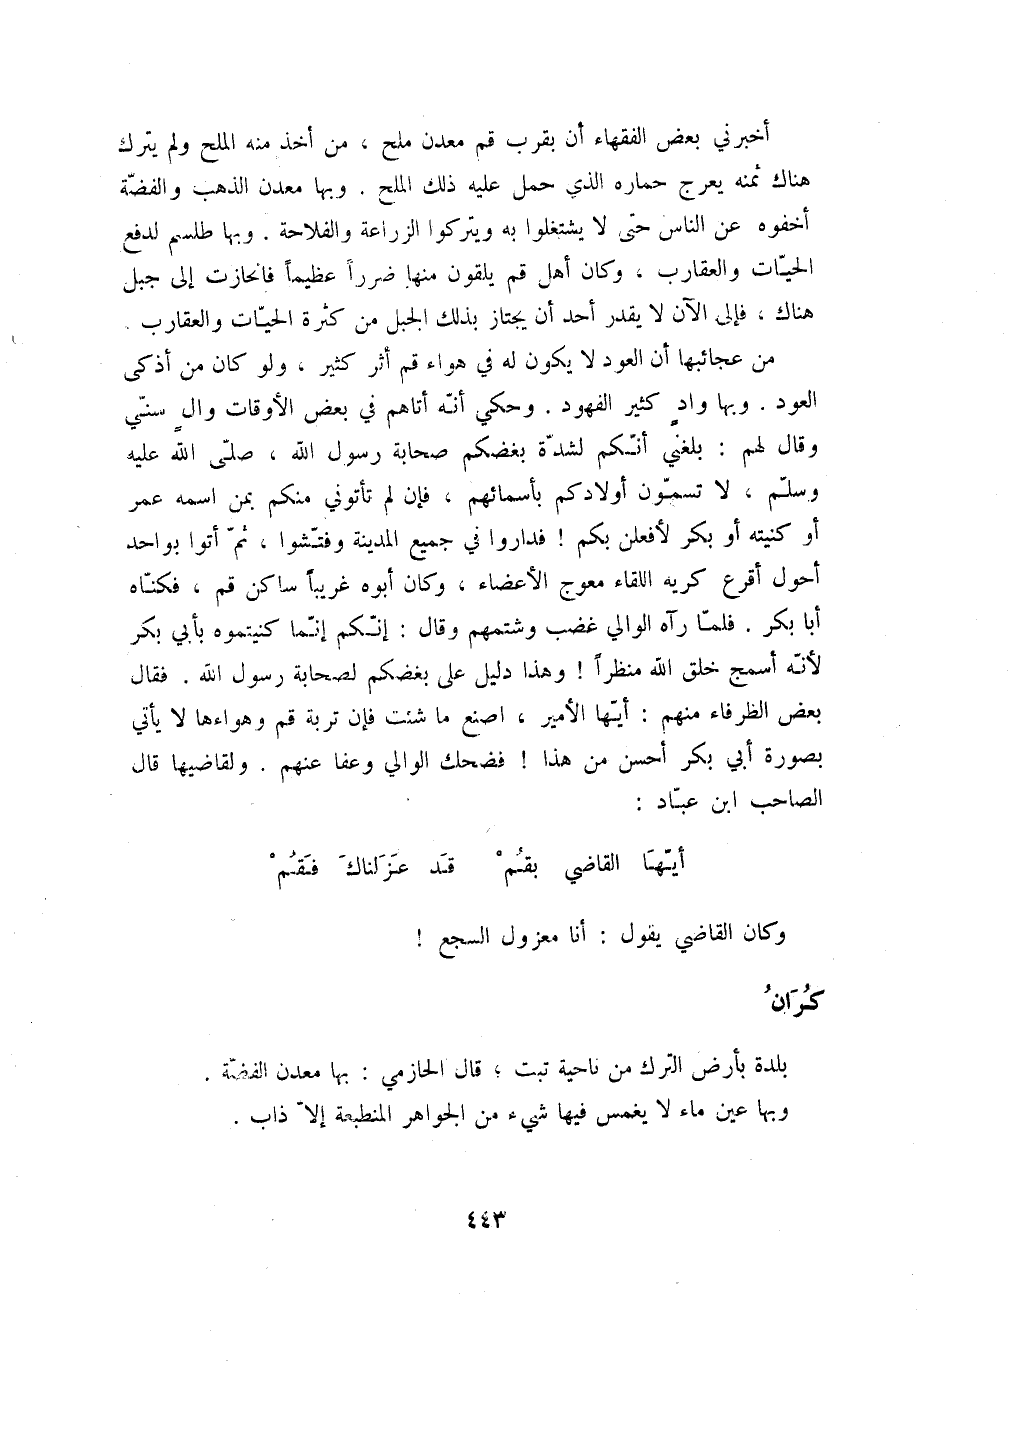 أخبرني بعض الفقهاء أن بقرب قم معدن ملح ، من أخذ منه الملح ولم يترك
هناك ثمنه يعرج حماره الذي حمل عليه ذلك الملح . وبها معدن الذهب والفضّة
أخفوه عن الناس حتى لا يشتغلوا به ويتركوا الزراعة والفلاحة . وبها طلسم لدفع
الحيّات والعقارب ، وكان أهل قم يلقون منها ضرراً عظيماً فانحازت إلى جبل
هناك ، فإلى الآن لا يقدر أحد أن يجتاز بذلك الجبل من كثرة الحيّات والعقارب .
من عجائبها أن العود لا يكون له في هواء قم أثر كثير ، ولو كان من أذكى
العود . وبها وادٍ كثير الفهود . وحكي أنّه أتاهم في بعض الأوقات والٍ سنّي
وقال لهم : بلغني أنّكم لشدّة بغضكم صحابة رسول الله ، صلّى الله عليه
وسلّم ، لا تسمّون أولادكم بأسمائهم ، فإن لم تأتوني منكم بمن اسمه عمر
أو كنيته أو بكر لأفعلن بكم ! فداروا في جميع المدينة وفتّشوا ، ثمّ أتوا بواحد
أحول أقرع كريه اللقاء معوج الأعضاء ، وكان أبوه غريباً ساكن قم ، فكنّاه
أبا بكر . فلمّا رآه الوالي غضب وشتمهم وقال : إنّكم إنّما كنيتموه بأبي بكر
لأنّه أسمج خلق الله منظراً ! وهذا دليل على بغضكم لصحابة رسول الله . فقال
بعض الظرفاء منهم : أيّها الأمير ، اصنع ما شئت فإن تربة قم وهواءها لا يأتي
بصورة أبي بكر أحسن من هذا ! فضحك الوالي وعفا عنهم . ولقاضيها قال
الصاحب ابن عبّاد :
أيّهَا القاضي بقُمْ قَد عَزَلناكَ فَقُمْ
وكان القاضي يقول : أنا معزول السجع !
كُرَانُ
بلدة بأرض الترك من ناحية تبت ؛ قال الحازمي : بها معدن الفضّة .
وبها عين ماء لا يغمس فيها شيء من الجواهر المنطبعة إلاّ ذاب .
٤٤٣